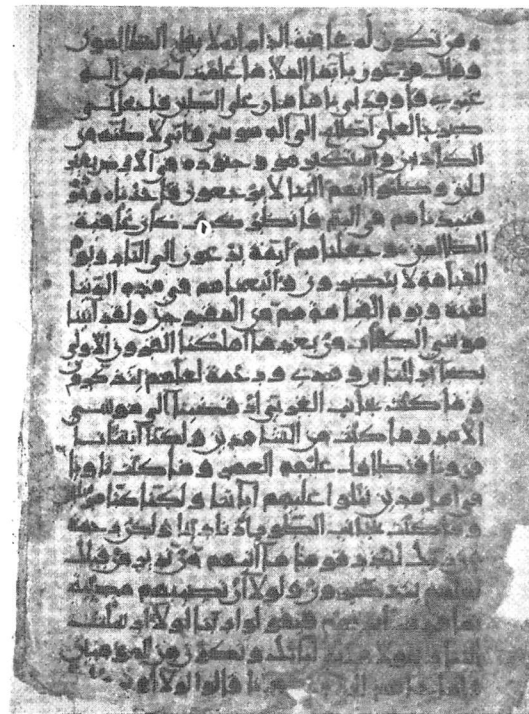 ومن تكون له عاقبة الدار انه لا يفلح الظالمون
وقال فرعون يا ايها الملا ما علمت لكم من اله
غيري فاوقد لي يا هامان على الطين فاجعل لي
صرحا لعلي اطلع الى اله موسى واني لاظنه من
الكاذبين واستكبر هو وجنوده في الارض بغير
الحق وظنوا انهم الينا لا يرجعون فاخذناه
فنبذناهم في اليم فانظر كيف كان عاقبة
الظالمين وجعلناهم ائمة يدعون الى النار ويوم
القيامة لا ينصرون واتبعناهم في هذه الدنيا
لعنة ويوم القيامة هم من المقبوحين ولقد اتينا
موسى الكتاب من بعد ما اهلكنا القرون الاولى
بصائر للناس وهدى ورحمة لعلهم يتذكرون
وما كنت بجانب الغربي اذ قضينا الى موسى
الامر وما كنت من الشاهدين ولكنا انشانا
قرونا فتطاول عليهم العمر وما كنت ثاويا
في اهل مدين تتلوا عليهم اياتنا ولكنا كنا مرسلين
وما كنت بجانب الطور اذ نادينا ولكن رحمة
من ربك لتنذر قوما ما اتاهم من نذير من قبلك
لعلهم يتذكرون ولولا ان تصيبهم مصيبة
بما قدمت ايديهم فيقولوا ربنا لولا ارسلت
الينا رسولا فنتبع اياتك ونكون من المومنين
فلما جاهم الحق من عندنا قالوا لولا اوتي